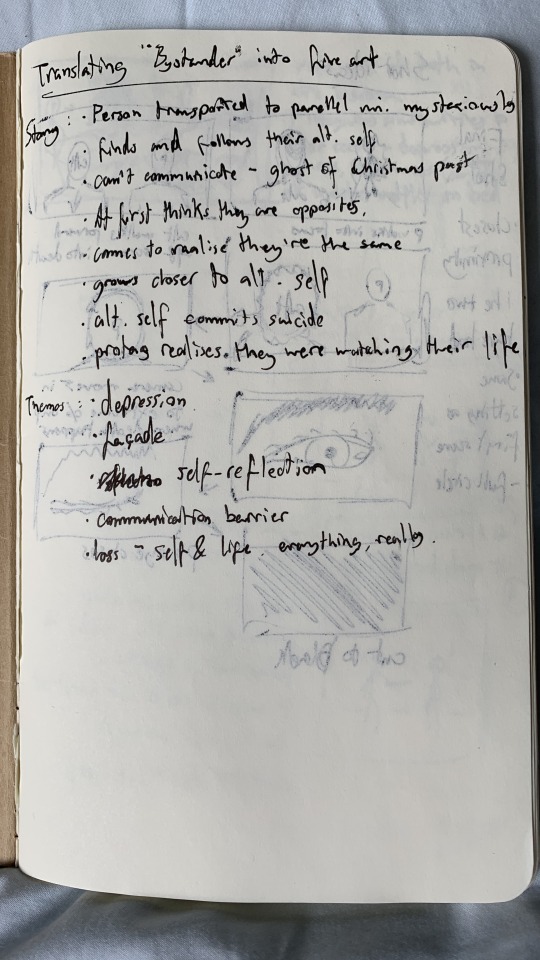 Translating "Bystander" into fine art
Story: · Person transported to parallel uni. mysteriously
· finds and follows their alt. self
· can't communicate - ghost of Christmas past
· At first thinks they are opposites.
· comes to realise they're the same
· grows closer to alt. self
· alt. self commits suicide
· protag realises. they were watching their life
Themes: · depression
· façade
· self-reflection
· communication barrier
· loss - self & life. everything, really.
cut to black